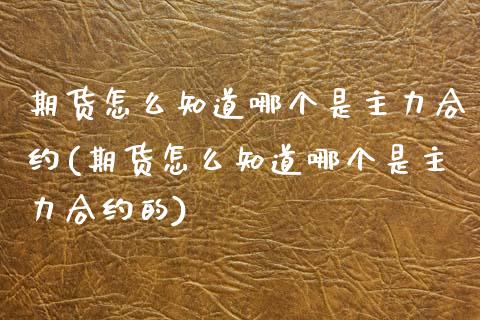 期货怎么知道哪个是主力合
约(期货怎么知道哪个是主
力合约的)